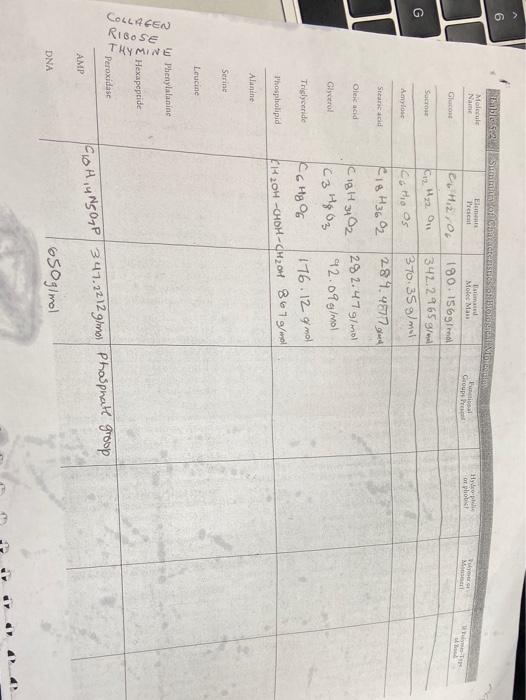 Table 5-2. Summary of Characteristics of Biological Molecules
Molecule Name Elements Present Estimated Molar Mass Functional Groups Present Hydrophilic or phobic? Polymer or Monomer? If Polymer-Type of Bond
Glucose C6 H12 O6 180.156g/mol
Sucrose C12 H22 O11 342.2965 g/mol
Amylose C6 H10 O5 370.35 g/mol
Stearic acid C18 H36 O2 284.4877 g/mol
Oleic acid C18 H34 O2 282.47 g/mol
Glycerol C3 H8 O3 92.09 g/mol
Triglyceride C6 H8 O6 176.12 g/mol
Phospholipid CH2OH-CHOH-CH2OH 867 g/mol
Alanine
Serine
Leucine
Phenylalanine
Hexapeptide
Peroxidase
AMP C10 H14 N5 O7 P 347.2212 g/mol Phosphate group
DNA 650g/mol
COLLAGEN
RIBOSE
THYMINE
6
G